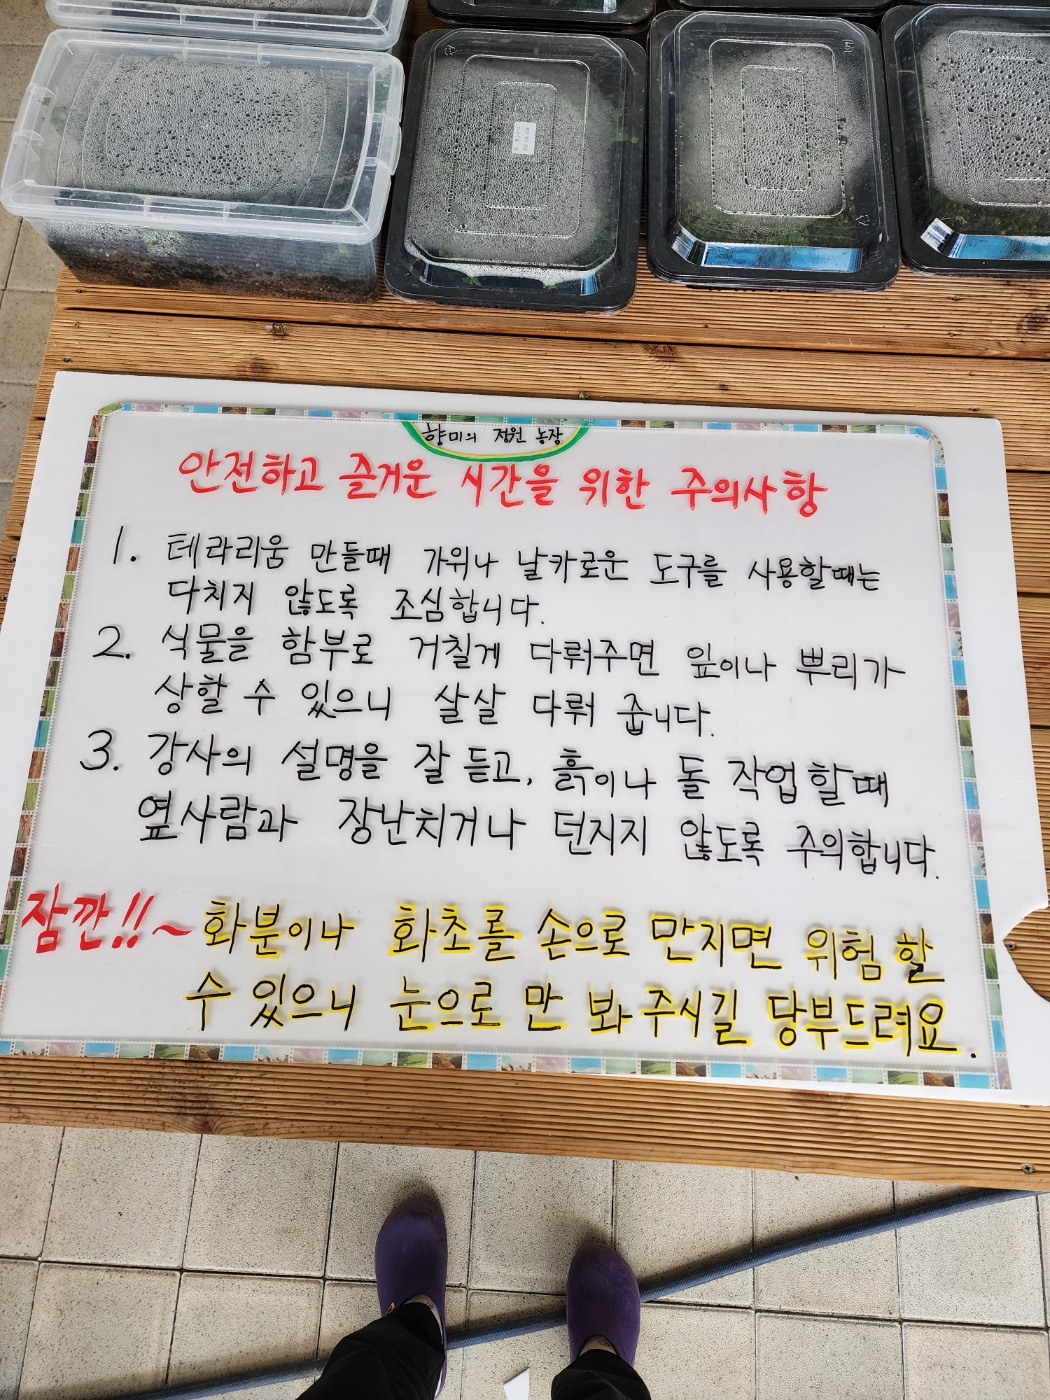 향미의 정원 농장
안전하고 즐거운 시간을 위한 주의사항
1. 테라리움 만들때 가위나 날카로운 도구를 사용할때는
다치지 않도록 조심합니다.
2. 식물을 함부로 거칠게 다뤄주면 잎이나 뿌리가
상할 수 있으니 살살 다뤄 줍니다.
3. 강사의 설명을 잘 듣고, 흙이나 돌 작업할때
옆사람과 장난치거나 던지지 않도록 주의합니다.
잠깐!!~화분이나 화초를 손으로 만지면 위험 할
수 있으니 눈으로 만 봐 주시길 당부드려요.